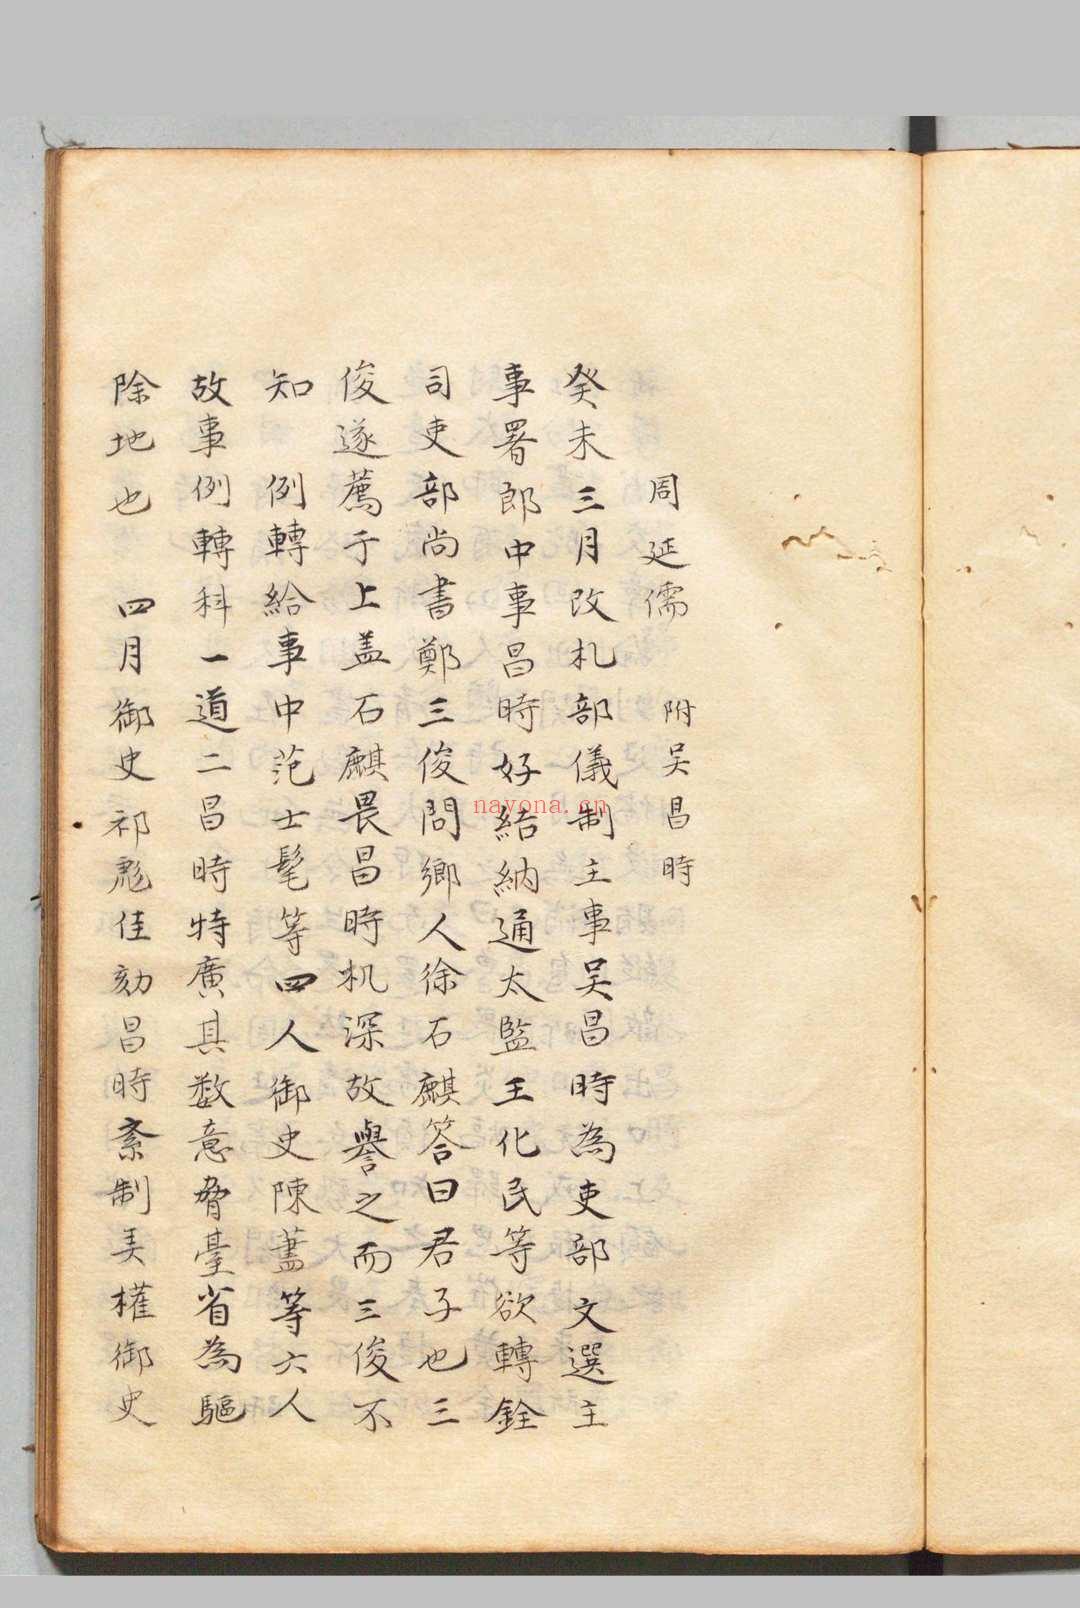 周延儒 附吴昌時
癸未三月改礼部儀制主事吴昌時為吏部文選主
事署郎中事昌時好結納通太監王化民等欲轉銓
司吏部尚書鄭三俊問鄉人徐石麒答曰君子也三
俊遂薦于上盖石麒畏昌時机深故譽之而三俊不
知 例轉給事中范士髦等四人御史陳藎等六人
故事例轉科一道二昌時特廣其数意脅臺省為驅
除地也 四月御史祁彪佳劾昌時紊制弄權御史
nayona.cn